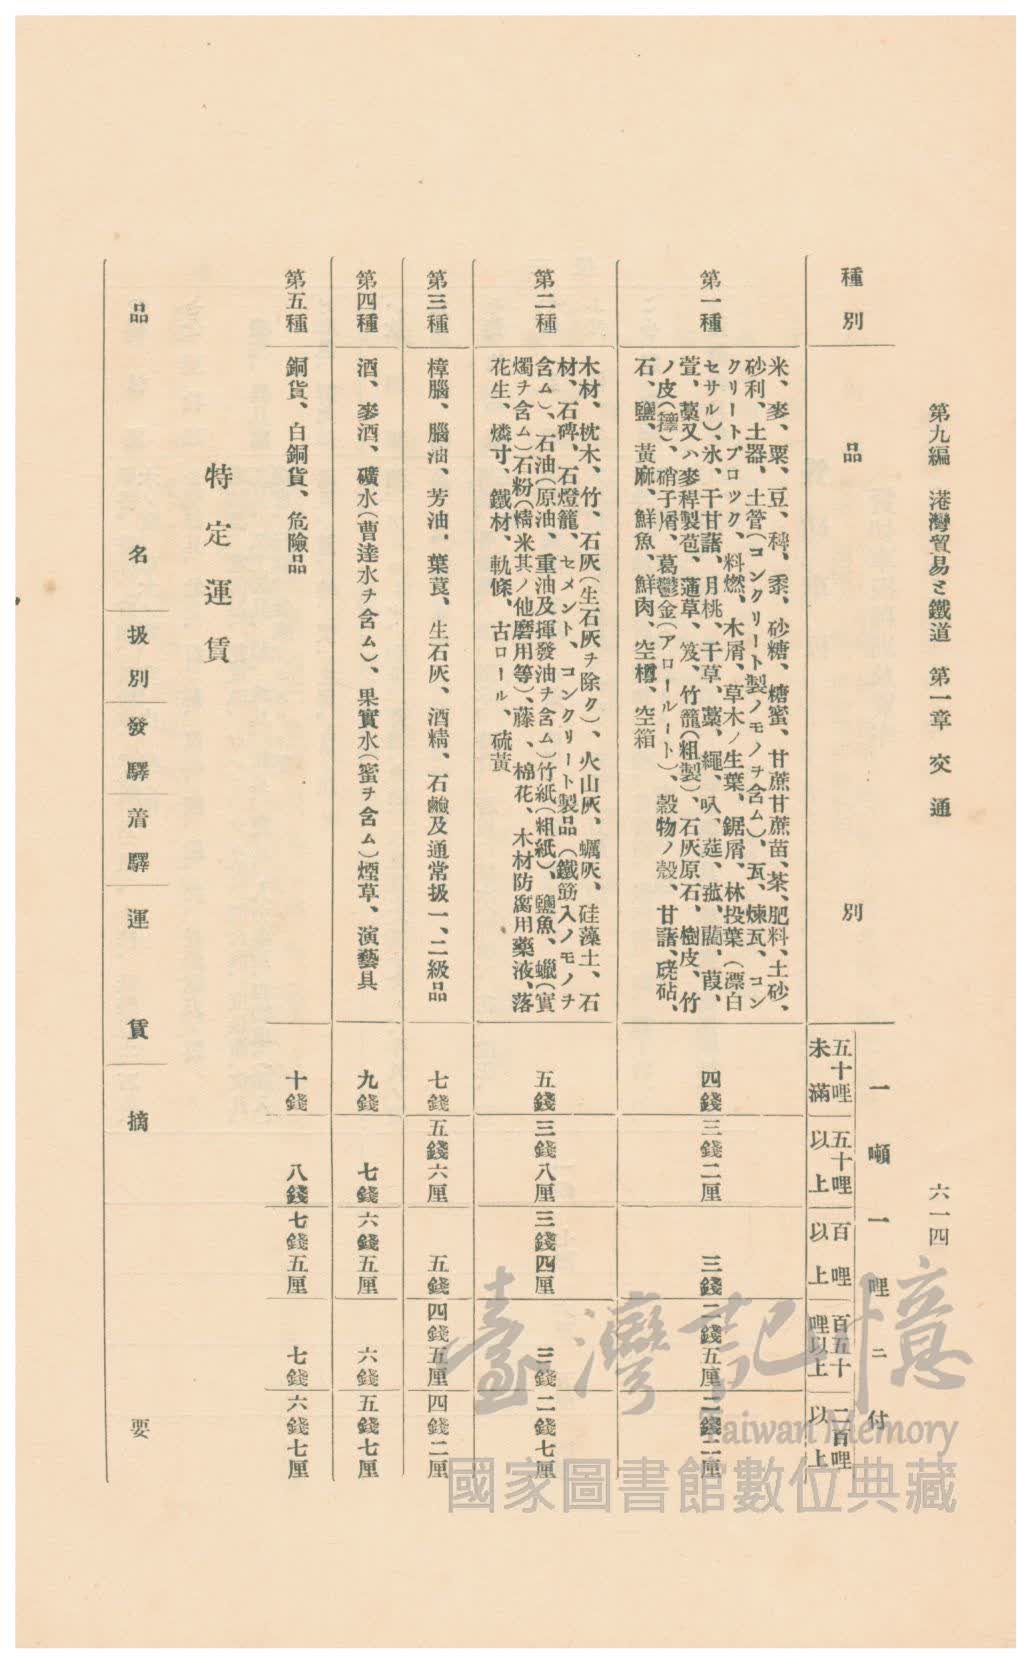 第九編　港灣貿易と鐵道　第一章　交通
六一四
種別　品別　一噸一哩ニ付
五十哩未滿
五十哩以上
百哩以上
百五十哩以上
二百哩以上
第一種
米、麥、粟、豆、稗、黍、砂糖、糖蜜、甘蔗甘蔗苗、茶、肥料、土砂、
砂利、土器、土管（コンクリート製ノモノヲ含ム）、瓦、煉瓦、コン
クリートブロック、料燃、木屑、草木ノ生葉、鋸屑、林投葉（漂白
セサル）、氷、干甘藷、月桃、干草、藁、繩、叺、莚、菰、藺、葭、
萱、藁又ハ麥稈製苞、蒲草、笈、竹籠（粗製）、石灰原石、樹皮、竹
ノ皮（籜）、硝子屑、葛鬱金（アロールート）、穀物ノ殼、甘藷、硓砧、
石、鹽、黃麻、鮮魚、鮮肉、空樽、空箱
四錢
三錢二厘
三錢
二錢五厘
第二種
木材、枕木、竹、石灰（生石灰ヲ除ク）、火山灰、蠣灰、硅藻土、石
材、石碑、石燈籠、セメント、コンクリート製品（鐵筋入ノモノヲ
含ム）、石油（原油、重油及揮發油ヲ含ム）竹紙（粗紙）、鹽魚、蠟（實
燭ヲ含ム）石粉（精米其ノ他磨用等）、藤、棉花、木材防腐用藥液、落
花生、燐寸、鐵材、軌條、古ロール、硫黃
五錢
三錢八厘
三錢四厘
三錢
二錢七厘
第三種
樟腦、腦油、芳油、葉莨、生石灰、酒精、石鹼及通常扱一、二級品
七錢
五錢六厘
五錢
四錢五厘
四錢二厘
第四種
酒、麥酒、礦水（曹達水ヲ含ム）、果實水（蜜ヲ含ム）煙草、演藝具
九錢
七錢
六錢五厘
六錢
五錢七厘
第五種
銅貨、白銅貨、危險品
十錢
八錢
七錢五厘
七錢
六錢七厘
特定運賃
品名　扱別　發驛　着驛　運賃　摘要
臺灣記憶
Taiwan Memory
國家圖書館數位典藏